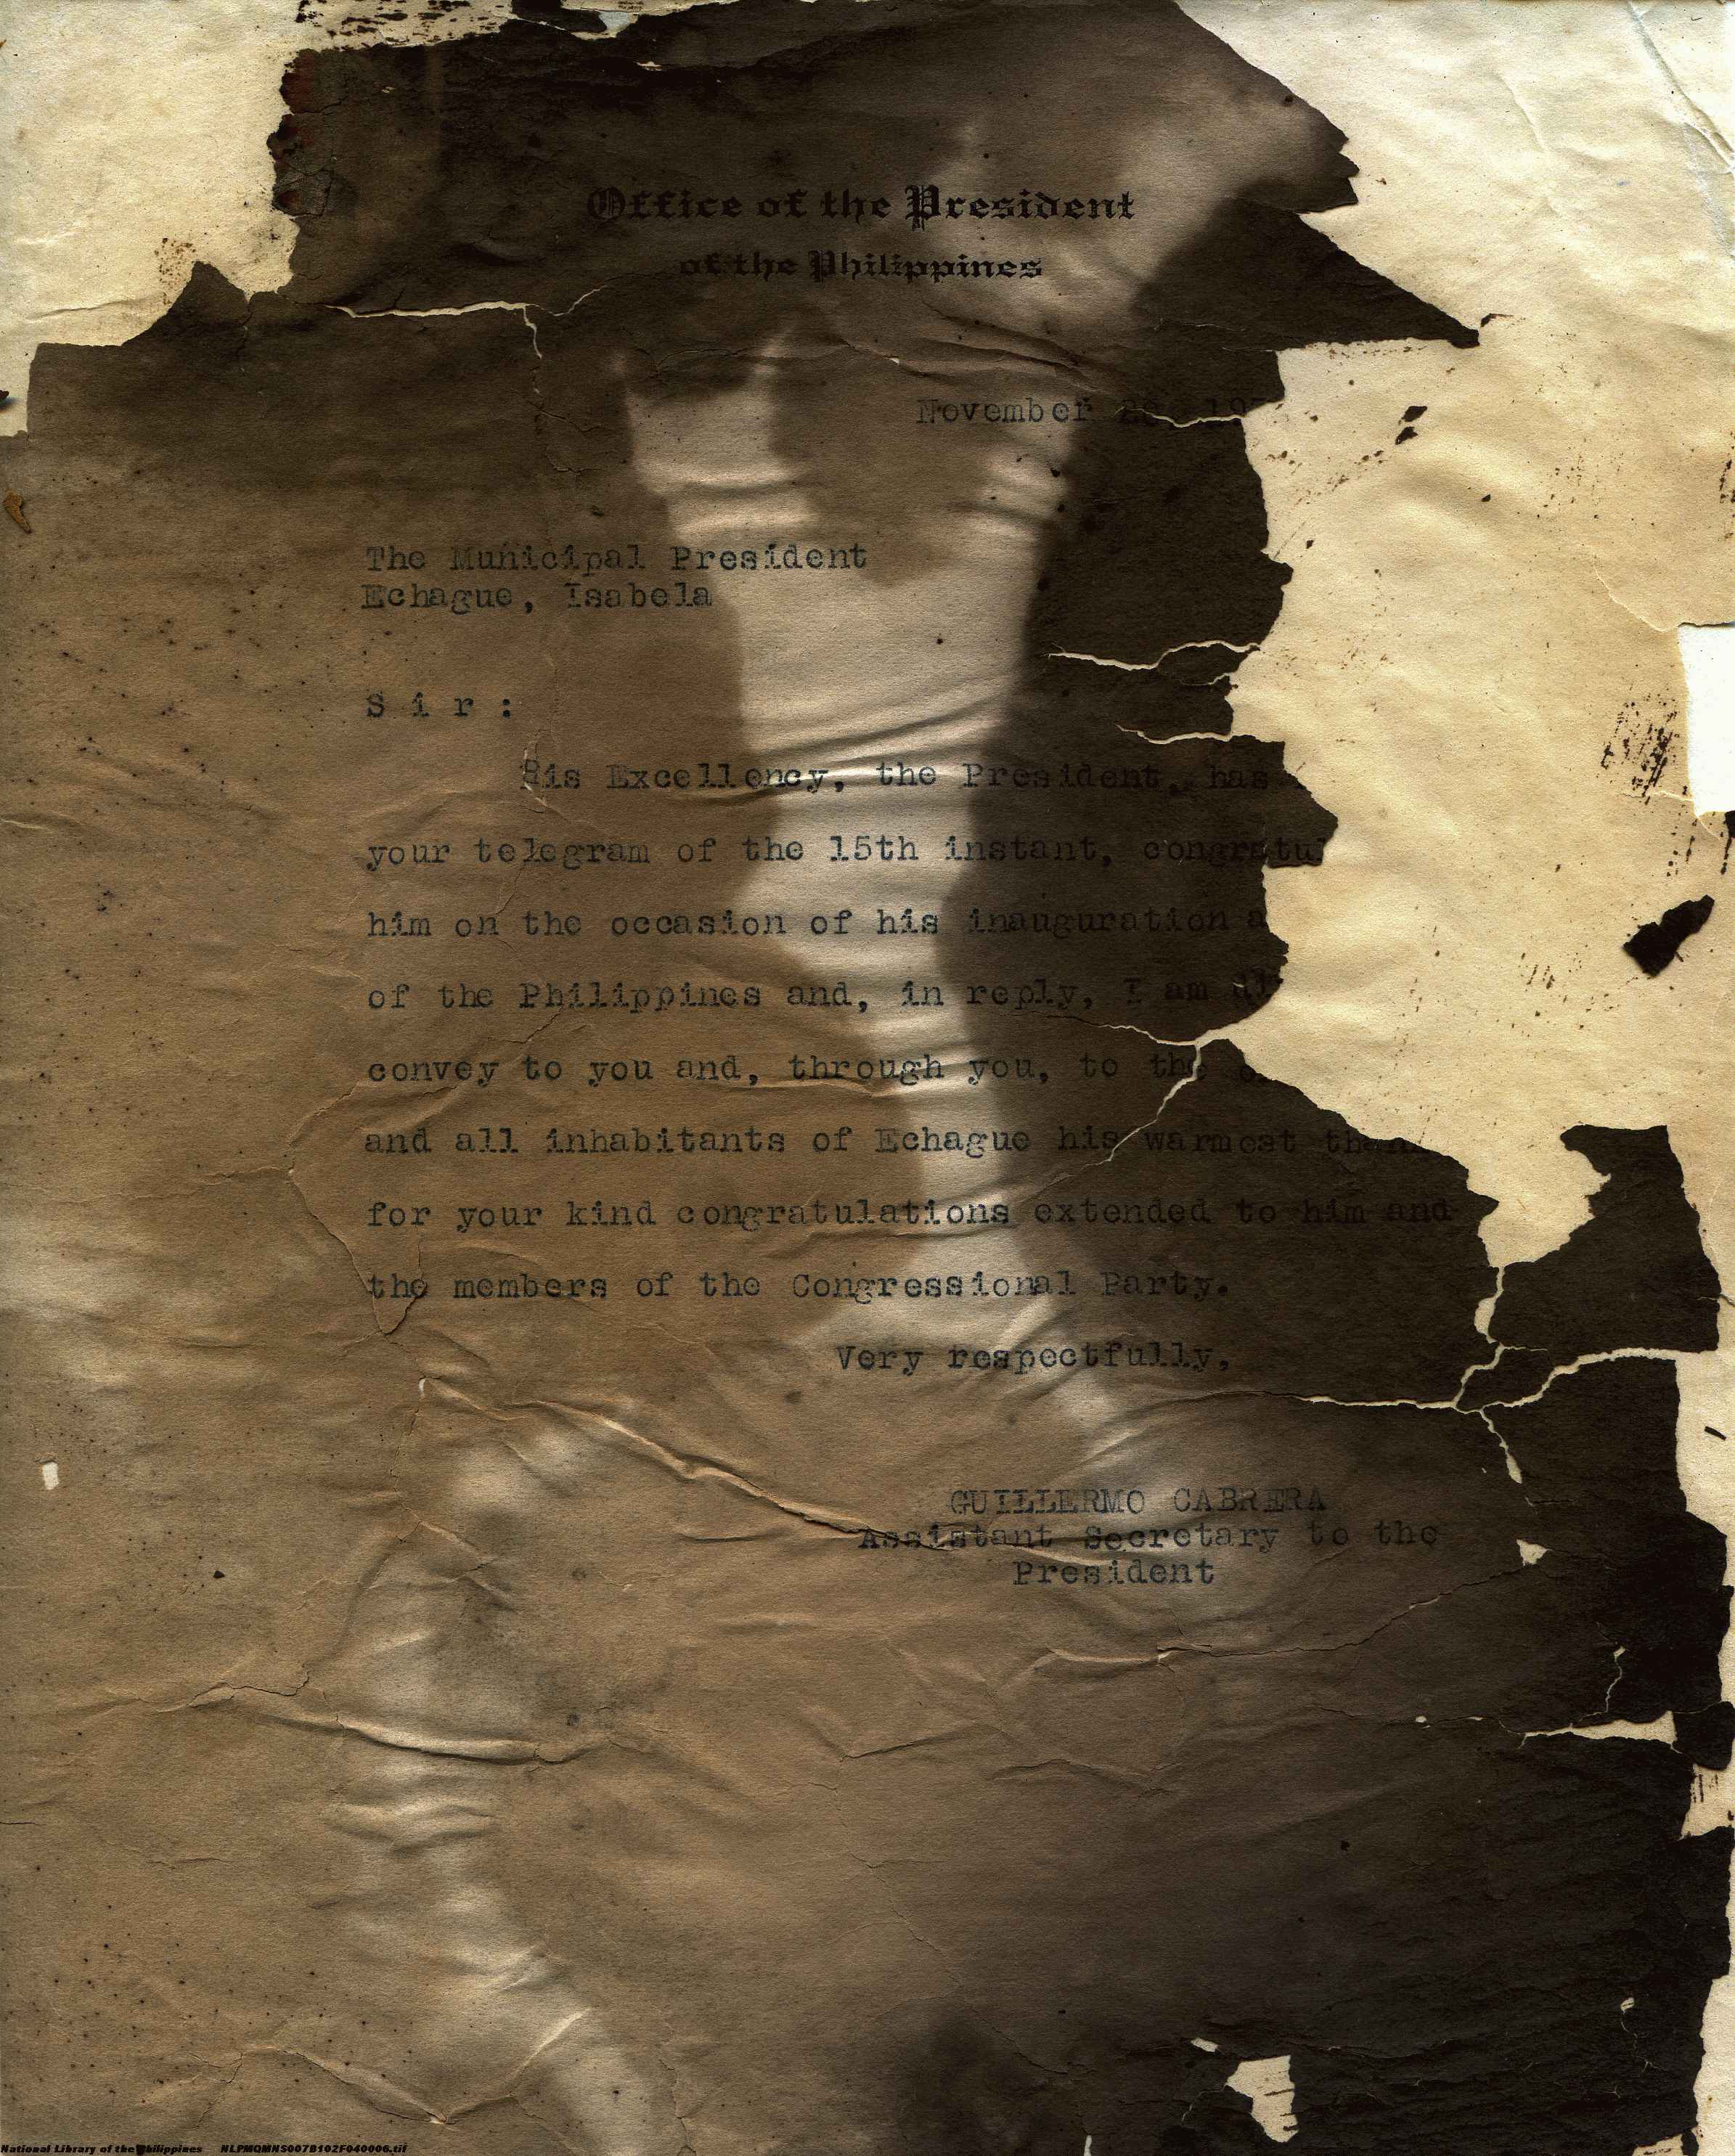 Office of the President
of the Philippines
November
The Municipal President
Echague, Isabela
S i r :
His Excellency, the President, has
your telegram of the 15th instant, congratul
him on the occasion of his inauguration a
of the Philippines and, in reply, I am di
convey to you and, through you, to the
and all inhabitants of Echague his warmest than
for your kind congratulations extended to him and
the members of the Congressional Party.
Very respectfully,
GUILLERMO CABRERA
Assistant Secretary to the
President
National Library of the Philippines NLPMQMNS007B102F040006.tif